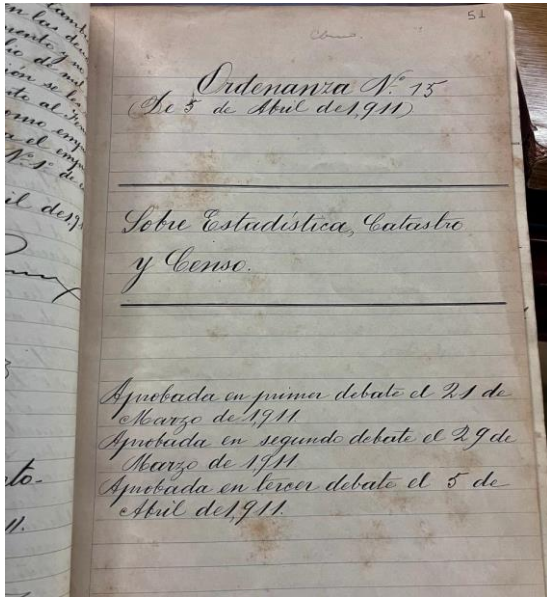 51
Ordenanza N.° 15
(De 5 de Abril de 1,911)
Sobre Estadística, Catastro
y Censo.
Aprobada en primer debate el 21 de
Marzo de 1,911.
Aprobada en segundo debate el 29 de
Marzo de 1,911
Aprobada en tercer debate el 5 de
Abril de 1,911.